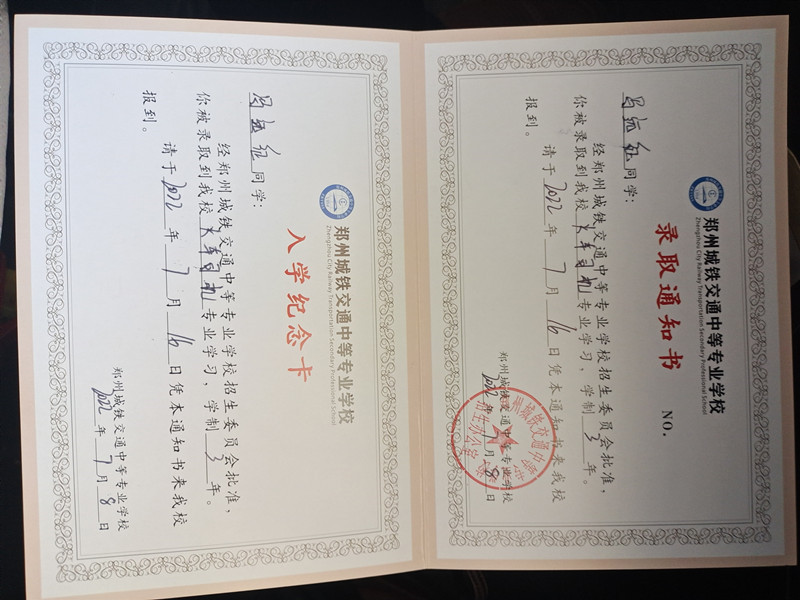 郑州城铁交通中等专业学校
Zhengzhou City Railway Transportation Secondary Professional School
录取通知书
NO.
同学:
经郑州城铁交通中等专业学校招生委员会批准,
你被录取到我校火车司机专业学习、学制3年。
请于2022年7月16日凭本通知书来我校
报到。
郑州城铁交通中等专业学校
2022年7月8日
郑州城铁交通中等专业学校
Zhengzhou City Railway Transportation Secondary Professional School
入学纪念卡
同学:
经郑州城铁交通中等专业学校招生委员会批准,
你被录取到我校火车司机专业学习、学制3年。
请于2022年7月16日凭本通知书来我校
报到。
郑州城铁交通中等专业学校
2022年7月8日